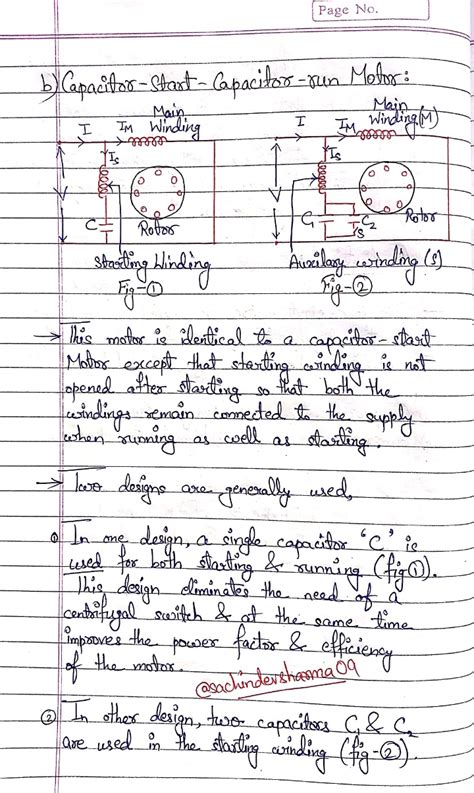 Page No.
b) Capacitor-Start-Capacitor-run Motor:
Main Winding
I
IM
Is
C
Rotor
Starting Winding
Fig-①
Main Winding(M)
I
IM
Is
C1
C2
S
Rotor
Auxilary winding (s)
Fig-②
→ This motor is identical to a capacitor-start
Motor except that starting winding is not
opened after starting so that both the
windings remain connected to the supply
when running as well as starting.
→ Two designs are generally used,
① In one design, a single capacitor 'C' is
used for both starting & running (fig①).
This design eliminates the need of a
centrifugal switch & at the same time
improves the power factor & efficiency
of the motor.
@sachindevsharma09
② In other design, two capacitors C1 & C2
are used in the starting winding (fig-②).